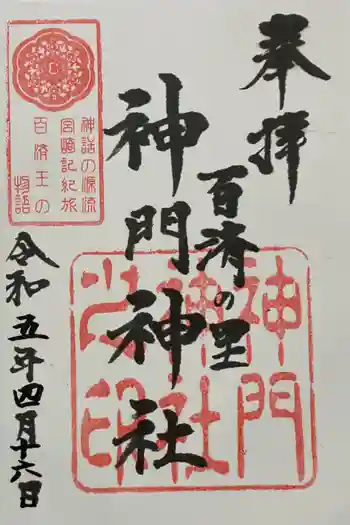 奉拝
百済の里
神門神社
令和五年四月十六日
神話の源流
宮崎記紀旅
百済王の
物語
神門
神社
之印